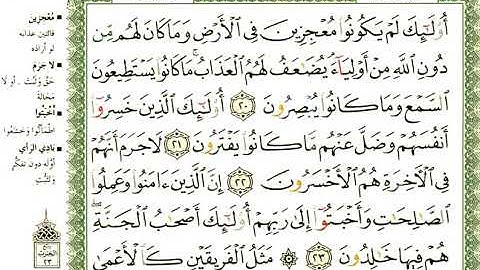 أُو۟لَٰٓئِكَ لَمْ يَكُونُوا۟ مُعْجِزِينَ فِى ٱلْأَرْضِ وَمَا كَانَ لَهُم مِّن
دُونِ ٱللَّهِ مِنْ أَوْلِيَآءَ يُضَٰعَفُ لَهُمُ ٱلْعَذَابُ ۚ مَا كَانُوا۟ يَسْتَطِيعُونَ
ٱلسَّمْعَ وَمَا كَانُوا۟ يُبْصِرُونَ ٢٠ أُو۟لَٰٓئِكَ ٱلَّذِينَ خَسِرُوٓا۟
أَنفُسَهُمْ وَضَلَّ عَنْهُم مَّا كَانُوا۟ يَفْتَرُونَ ٢١ لَا جَرَمَ أَنَّهُمْ
فِى ٱلْءَاخِرَةِ هُمُ ٱلْأَخْسَرُونَ ٢٢ إِنَّ ٱلَّذِينَ ءَامَنُوا۟ وَعَمِلُوا۟
ٱلصَّٰلِحَٰتِ وَأَخْبَتُوٓا۟ إِلَىٰ رَبِّهِمْ أُو۟لَٰٓئِكَ أَصْحَٰبُ ٱلْجَنَّةِ ۖ
هُمْ فِيهَا خَٰلِدُونَ ٢٣ ۞ مَثَلُ ٱلْفَرِيقَيْنِ كَٱلْأَعْمَىٰ
مُعْجِزين
فائتين عذابه
لو أراده
لا جرم
حقّ وثبت . أو لا
محالة
أخبتوا
اطمأنّوا وخشعوا
بادي الرأي
أوّله دون تفكّر
وتثبّت
الحزب
٢٣